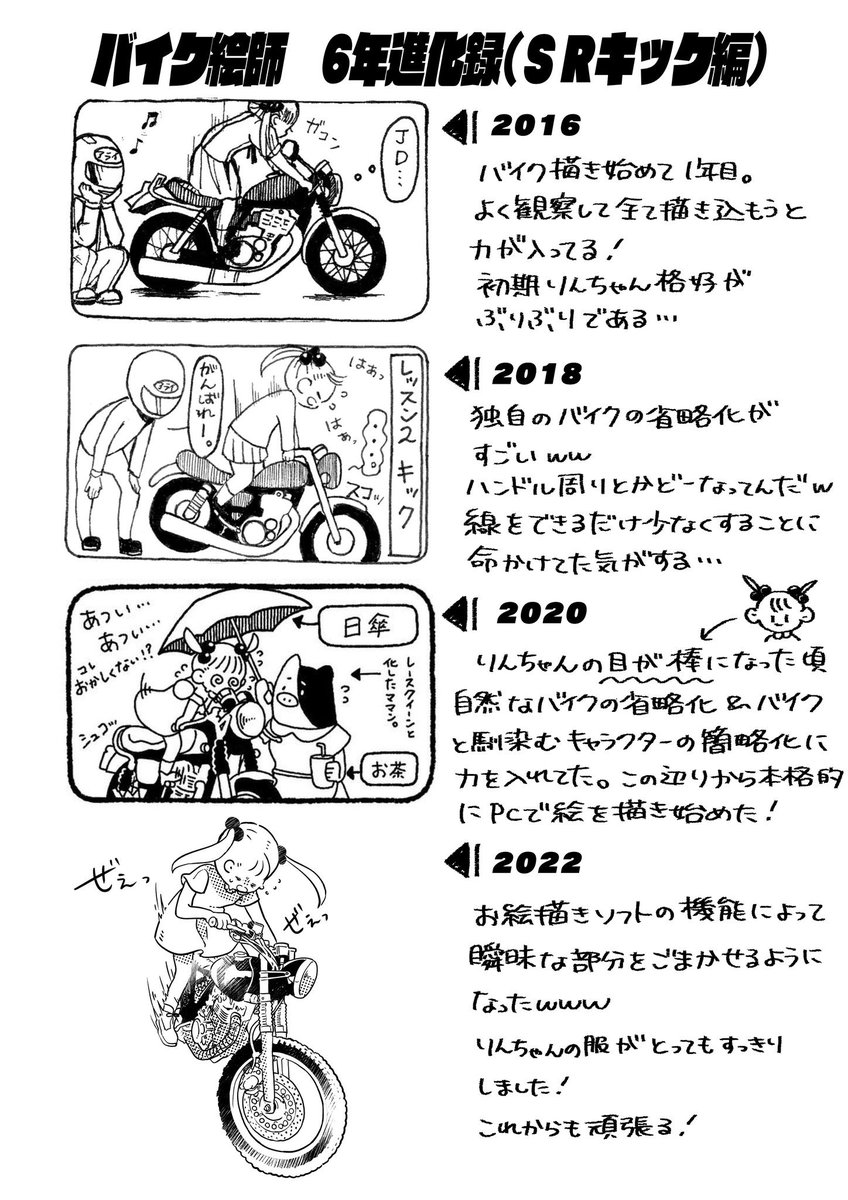 バイク絵師 6年進化録(SRキック編)
2016
ガコン
JD…
アライ
バイク描き始めて1年目。
よく観察して全て描き込もうと
力が入ってる!
初期りんちゃん格好が
ぶりぶりである…
2018
レッスン2 キック
はぁっ
はぁっ
がんばれー。
スコッ
アライ
独自のバイクの省略化が
すごいww
ハンドル周りとかどーなってんだw
線をできるだけ少なくすることに
命かけてた気がする…
2020
あつい…
あつい…
コレ
おかしくない!?
シュゴッ
日傘
レースクィーンと
化したママン。
お茶
りんちゃんの目が棒になった頃
自然なバイクの省略化&バイク
と馴染むキャラクターの簡略化に
力を入れてた。この辺りから本格的
にPCで絵を描き始めた!
2022
ぜぇっ
ぜぇっ
お絵描きソフトの機能によって
瞬昧な部分をごまかせるように
なったwww
りんちゃんの服がとってもすっきり
しました!
これからも頑張る!